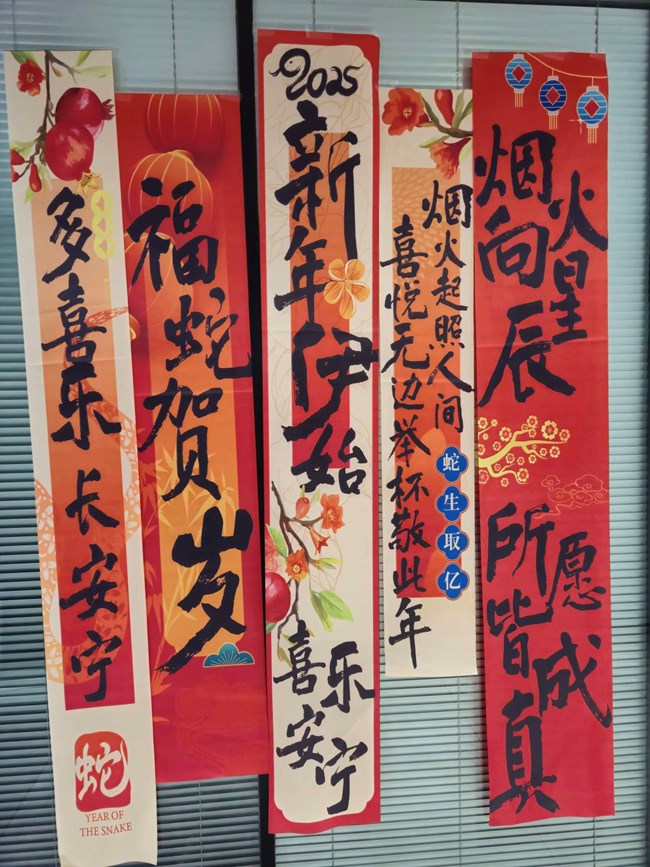 多喜乐长安宁
蛇
YEAR OF
THE SNAKE
福蛇贺岁
2025
新年伊始
喜乐安宁
烟火起照人间
喜悦无边举杯敬此年
蛇生取亿
烟火向星辰
所愿皆成真